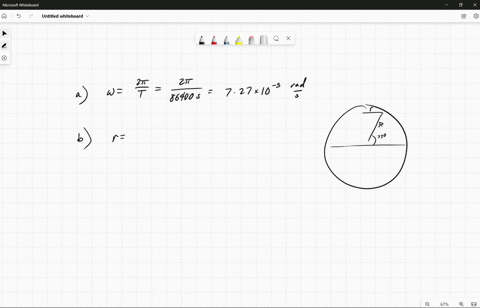 Microsoft Whiteboard
Untitled whiteboard
a) ω = 2π/T = 2π/86400 s = 7.27 × 10⁻⁵ rad/s
r
R
b) r =
67%